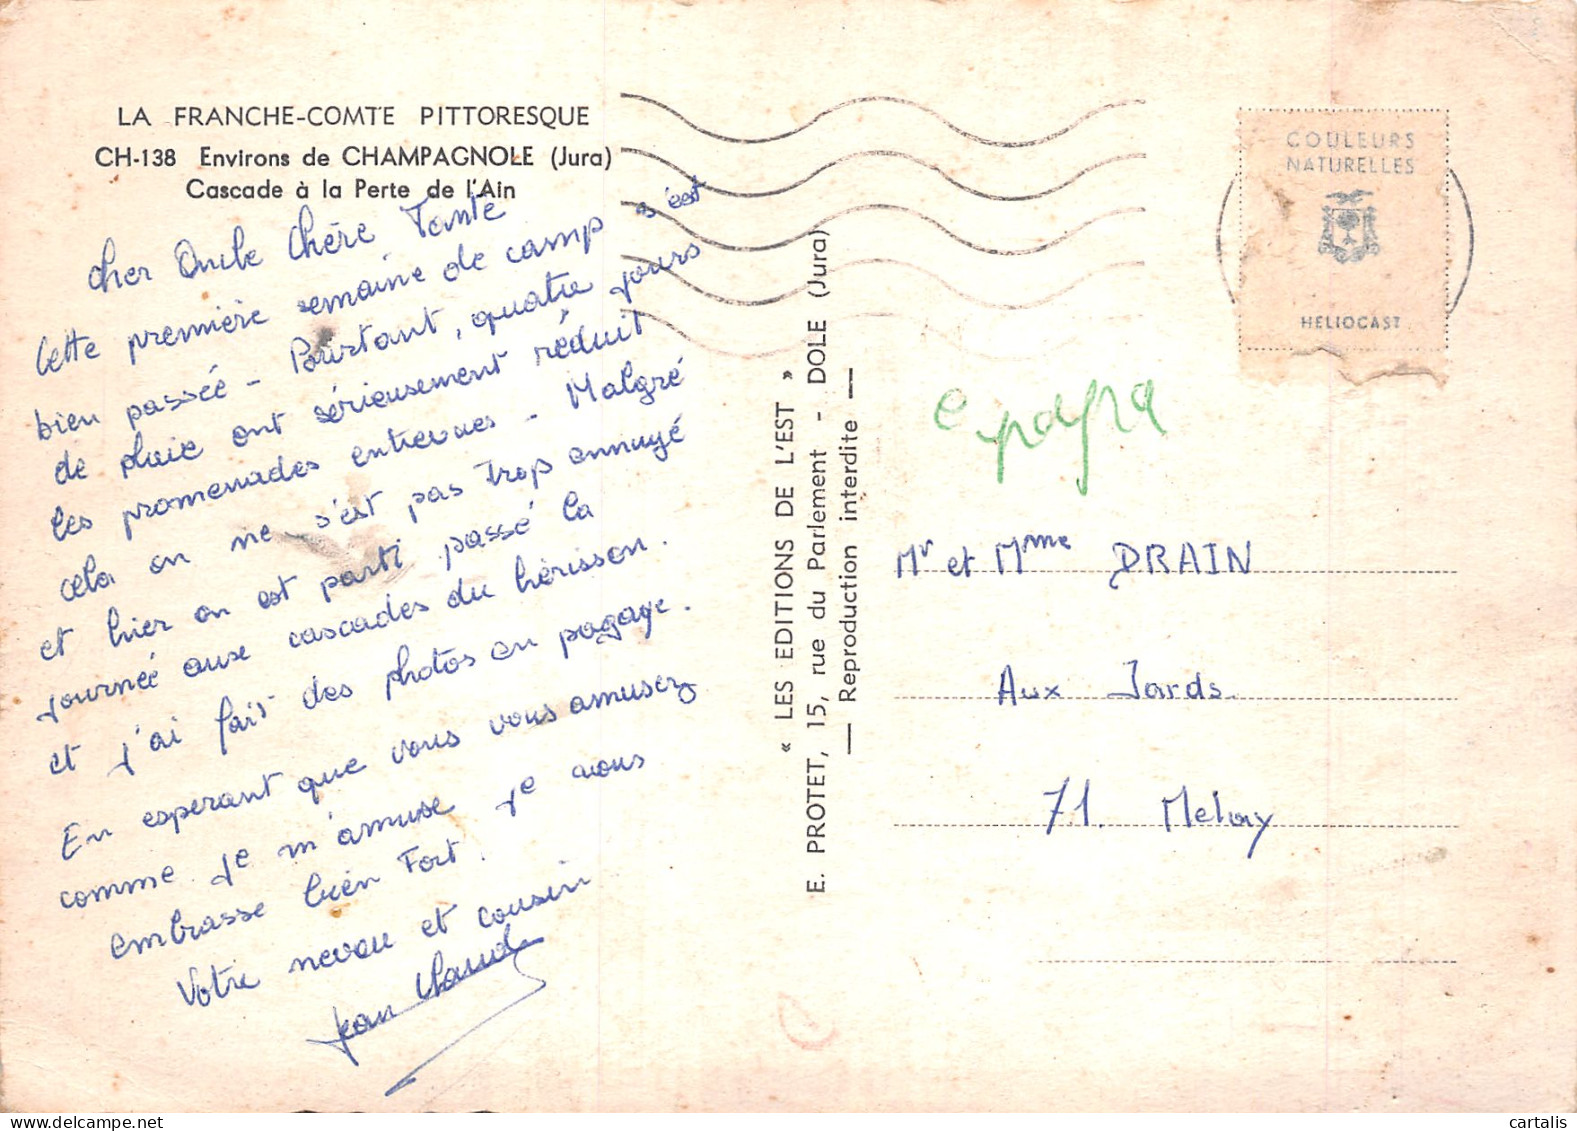 LA FRANCHE-COMTÉ PITTORESQUE
CH-138 Environs de CHAMPAGNOLE (Jura)
Cascade à la Perte de l'Ain
Cher Oncle Chère Tante
Cette première semaine de camp s'est
bien passée - Pourtant, quatre jours
de pluie ont sérieusement réduit
les promenades entrevues - Malgré
cela on ne s'est pas trop annuyé
et hier on est parti passé la
journée aux cascades du hérisson.
et j'ai fais des photos en pagaye.
En esperant que vous vous amusez
comme je m'amuse je vous
embrasse bien Fort.
Votre neveu et cousin
Jean Claude
« LES EDITIONS DE L'EST »
E. PROTET, 15, rue du Parlement - DOLE (Jura)
— Reproduction interdite —
COULEURS
NATURELLES
HELIOCAST
Mr et Mme DRAIN
Aux Jards
71. Melay
cartalis
www.delcampe.net